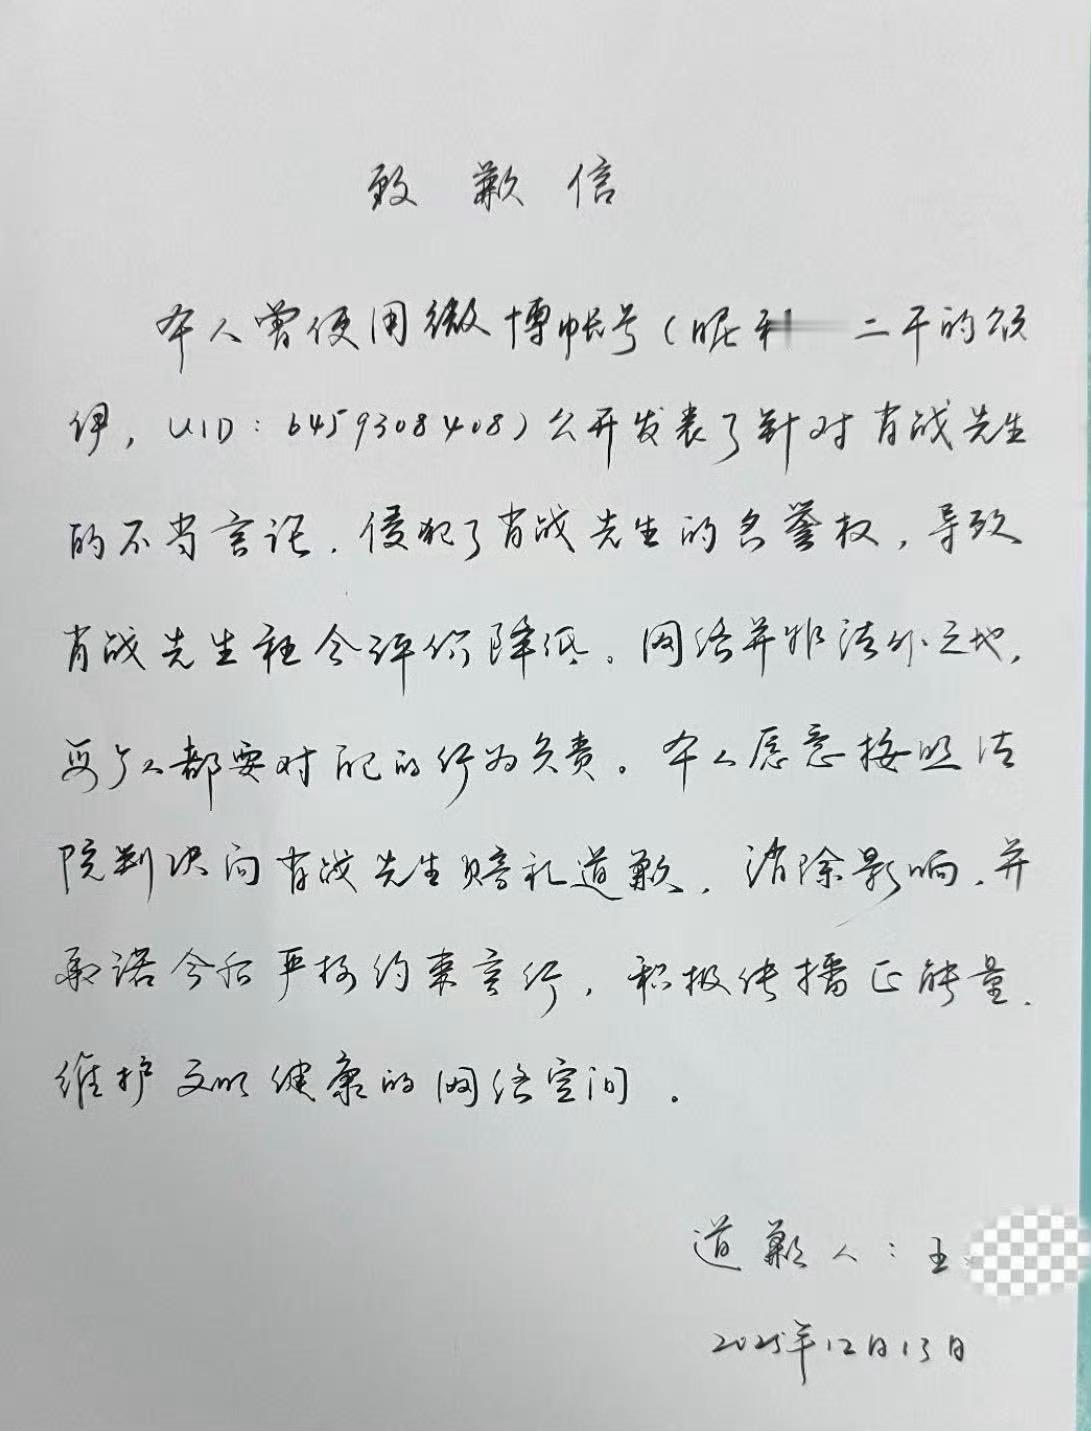 致歉信
本人曾使用微博帐号(昵 二干的颂
伊,UID:6459308408)公开发表了针对肖战先生
的不当言论.侵犯了肖战先生的名誉权,导致
肖战先生社会评价降低。网络并非法外之地,
每个人都要对自己的行为负责。本人愿意按照法
院判决向肖战先生赔礼道歉,消除影响.并
承诺今后严格约束言行,积极传播正能量.
维护文明健康的网络空间.
道歉人:王
2025年12月13日